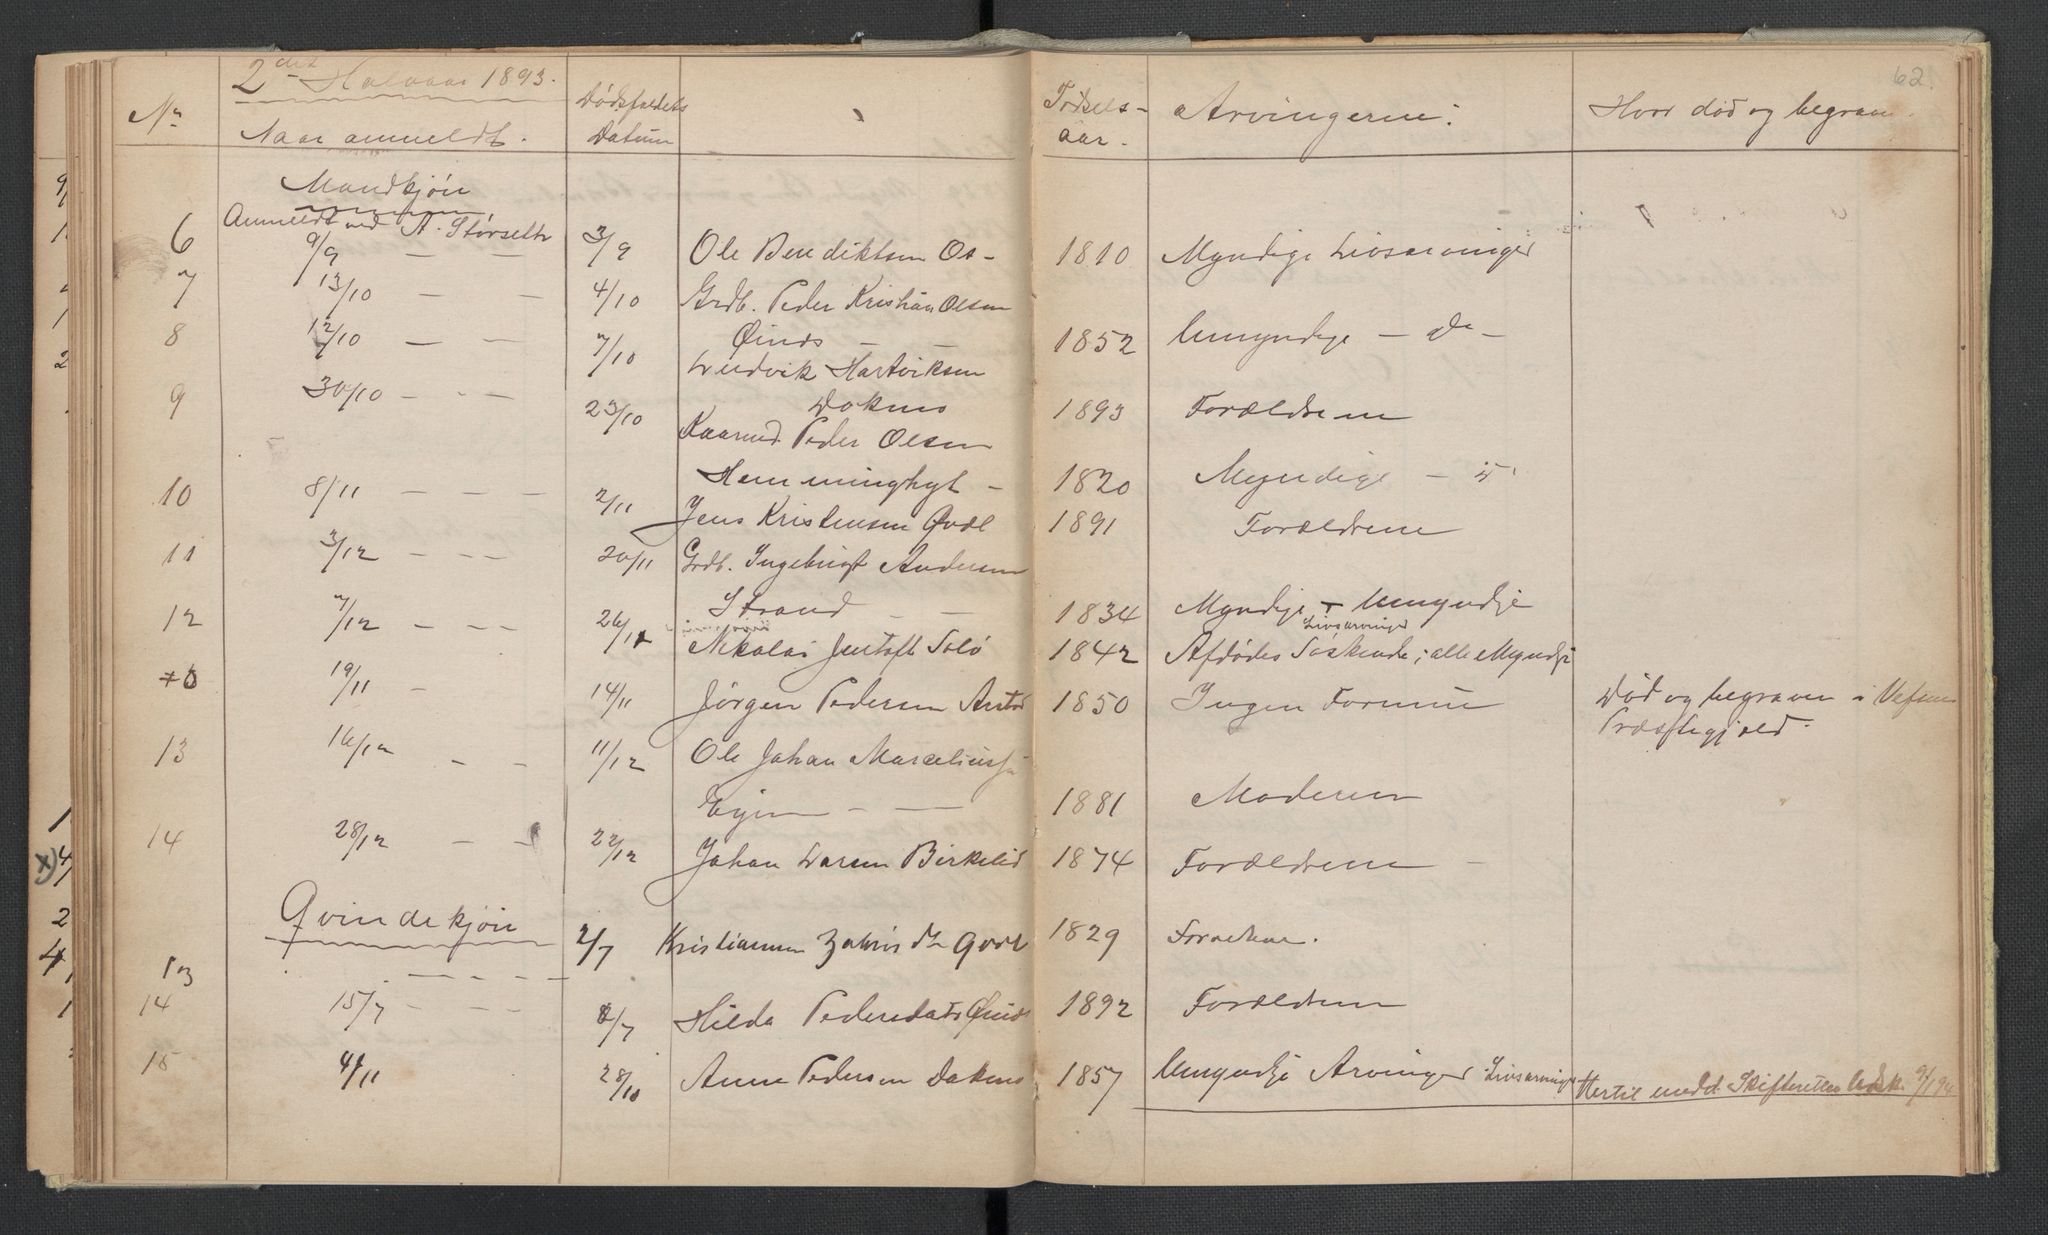 2det Halvaar 1893.
62.
No
Naar anmeldt.
Dødsfaldets Datum
Fødselsaar.
Arvingerne:
Hvor død og begraven.
Mandkjøn
Anmeldt ved A. Størseth
6 9/9 — — 3/9 Ole Benediktsen Os- 1810 Myndige Livsarvinger
7 13/10 — — 4/10 Grdb. Peder Kristian Olsen
Øinds — — 1852 Umyndige — do —
8 12/10 — — 7/10 Ludvik Hartviksen
Dokmo 1893 Forældrene
9 30/10 — - — 23/10 Kaarmd. Peder Olsen
Hemminghyt — 1820 Myndige —
10 8/11 — — — 2/11 Jens Kristensen Qval 1891 Forældrene
11 3/12 — — — 20/11 Grdb. Ingebrigt Andersen
Strand — 1834 Myndige + Umyndje
Livsarvinger
12 7/12 — — — 26/11 Nikolai Jentoft Solø 1842 Afdødes Søskende; alle Myndje
19/11 — 14/11 Jørgen Pedersen 1850 Ingen Formue Død og begraven i Vefsen
Præstegjeld.
13 16/12 — — 11/12 Ole Johan Marcelius
— — 1881 Moderen
14 28/12 — — 22/12 Johan Larsen Birkelid 1874 Forældrene —
Qvindekjøn
13 — — — — 2/7 Kristianna Zakrisdtr Qval 1829
14 15/7 — — — 8/7 Hilda Pedersdatr Øinds 1892 Forældrene
15 4/11 28/10 Anne Pedersen Dokmo 1857 Umyndje Arvinger Livsarvinger
Hertil medd. Skifteretten 9/1 94